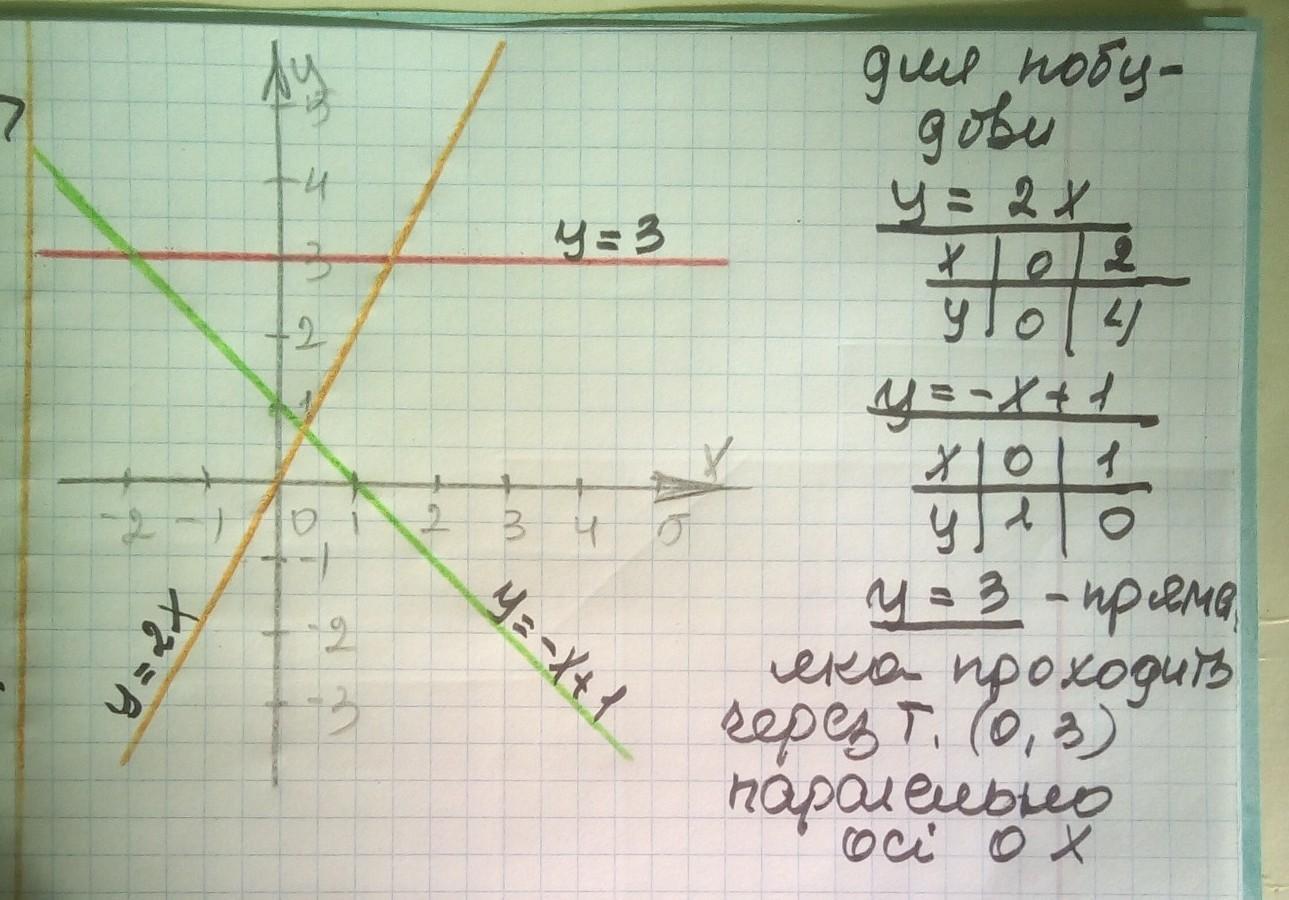 y
5
4
y = 3
3
2
1
x
-2 -1 0 1 2 3 4 5
-1
-2
-3
y = 2x
y = -x + 1
для побу-
дови
y = 2x
x | 0 | 2
y | 0 | 4
y = -x + 1
x | 0 | 1
y | 1 | 0
y = 3 - пряма,
яка проходить
через т. (0, 3)
паралельно
осі 0 X